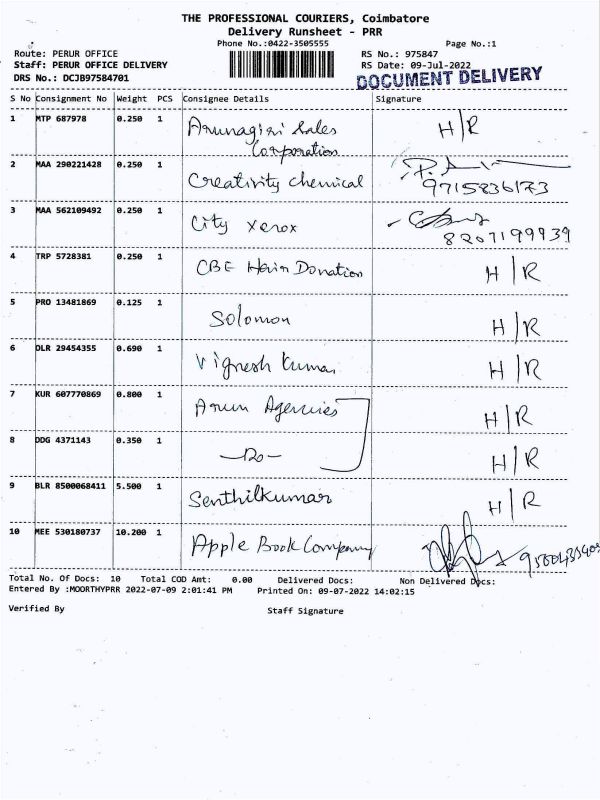 THE PROFESSIONAL COURIERS, Coimbatore
Delivery Runsheet - PRR
Phone No.:0422-3505555 Page No.:1
Route: PERUR OFFICE RS No.: 975847
Staff: PERUR OFFICE DELIVERY RS Date: 09-Jul-2022
DRS No.: DCJB97584701 DOCUMENT DELIVERY
S No Consignment No Weight PCS Consignee Details Signature
1 MTP 687978 0.250 1 Arunagiri Sales H/R
Corporation
2 MAA 290221428 0.250 1 Creativity chemical
9715836173
3 MAA 562109492 0.250 1 City Xerox
8207199939
4 TRP 5728381 0.250 1 CBE Hair Donation H/R
5 PRO 13481869 0.125 1 Solomon H/R
6 DLR 29454355 0.690 1 Vignesh Kumar H/R
7 KUR 607770869 0.800 1 Arun Agencies H/R
8 DDG 4371143 0.350 1 -Do- H/R
9 BLR 8500068411 5.500 1 Senthilkumar H/R
10 MEE 530180737 10.200 1 Apple Book Company
Total No. Of Docs: 10 Total COD Amt: 0.00 Delivered Docs: Non Delivered Docs:
Entered By :MOORTHYPRR 2022-07-09 2:01:41 PM Printed On: 09-07-2022 14:02:15
Verified By Staff Signature